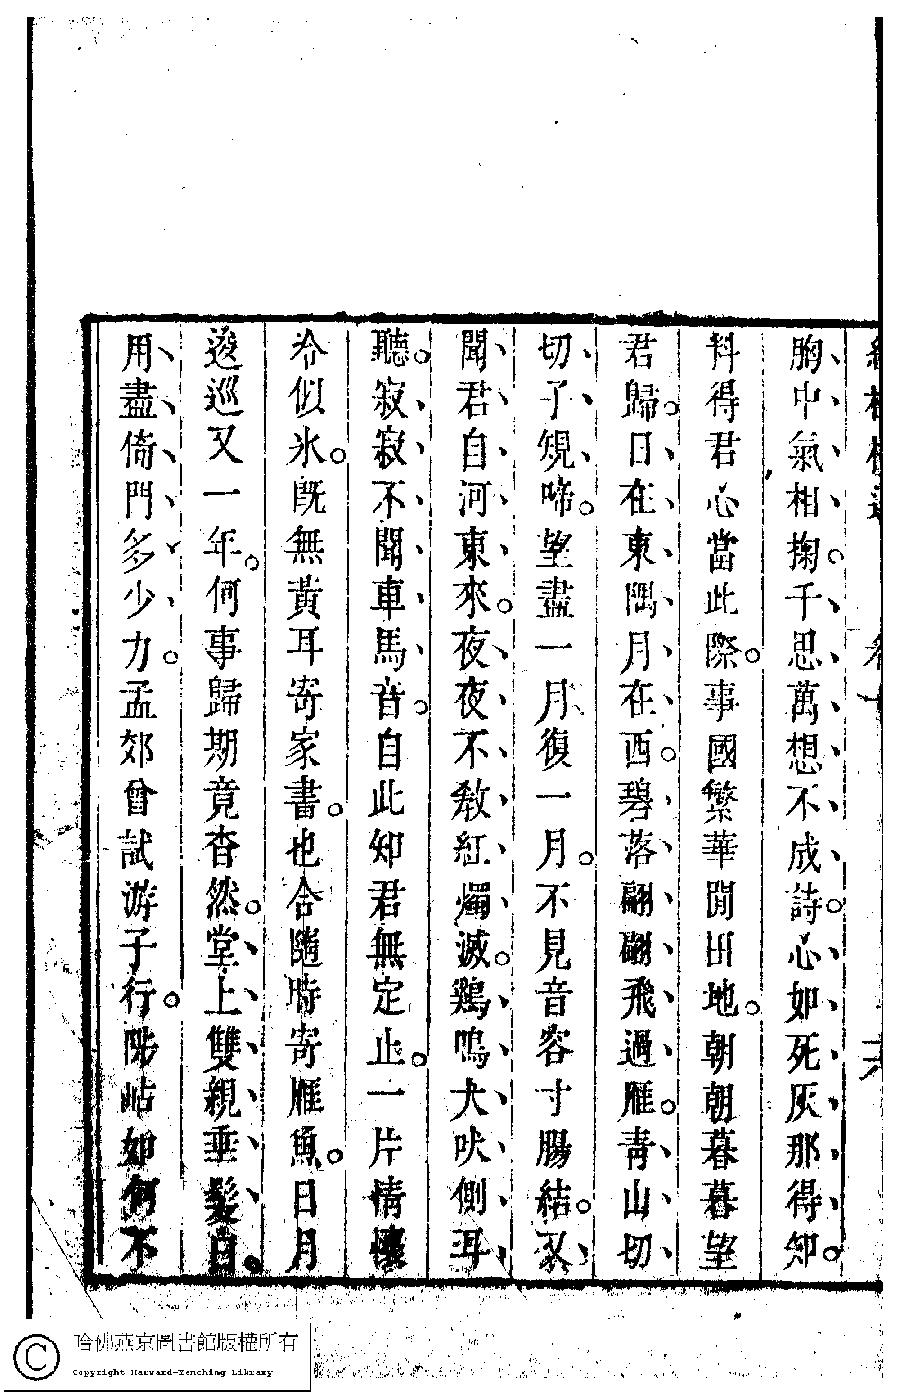 胸中氣相掬。千思萬想不成詩。心如死灰那得知。
料得君心當此際。事國繁華閒田地。朝朝暮暮望
君歸。日在東隅月在西。碧落翩翩飛過雁。青山切
切子規啼。望盡一月復一月。不見音容寸腸結。又
聞君自河東來。夜夜不教紅燭滅。鷄鳴犬吠側耳
聽。寂寂不聞車馬音。自此知君無定止。一片情懷
冷似氷。既無黃耳寄家書。也合隨時寄雁魚。日月
逡巡又一年。何事歸期竟杳然。堂上雙親垂髮白。
用盡倚門多少力。孟郊曾試游子行。陟岵如何不
哈佛燕京圖書館版權所有
Copyright Harvard-Yenching Library